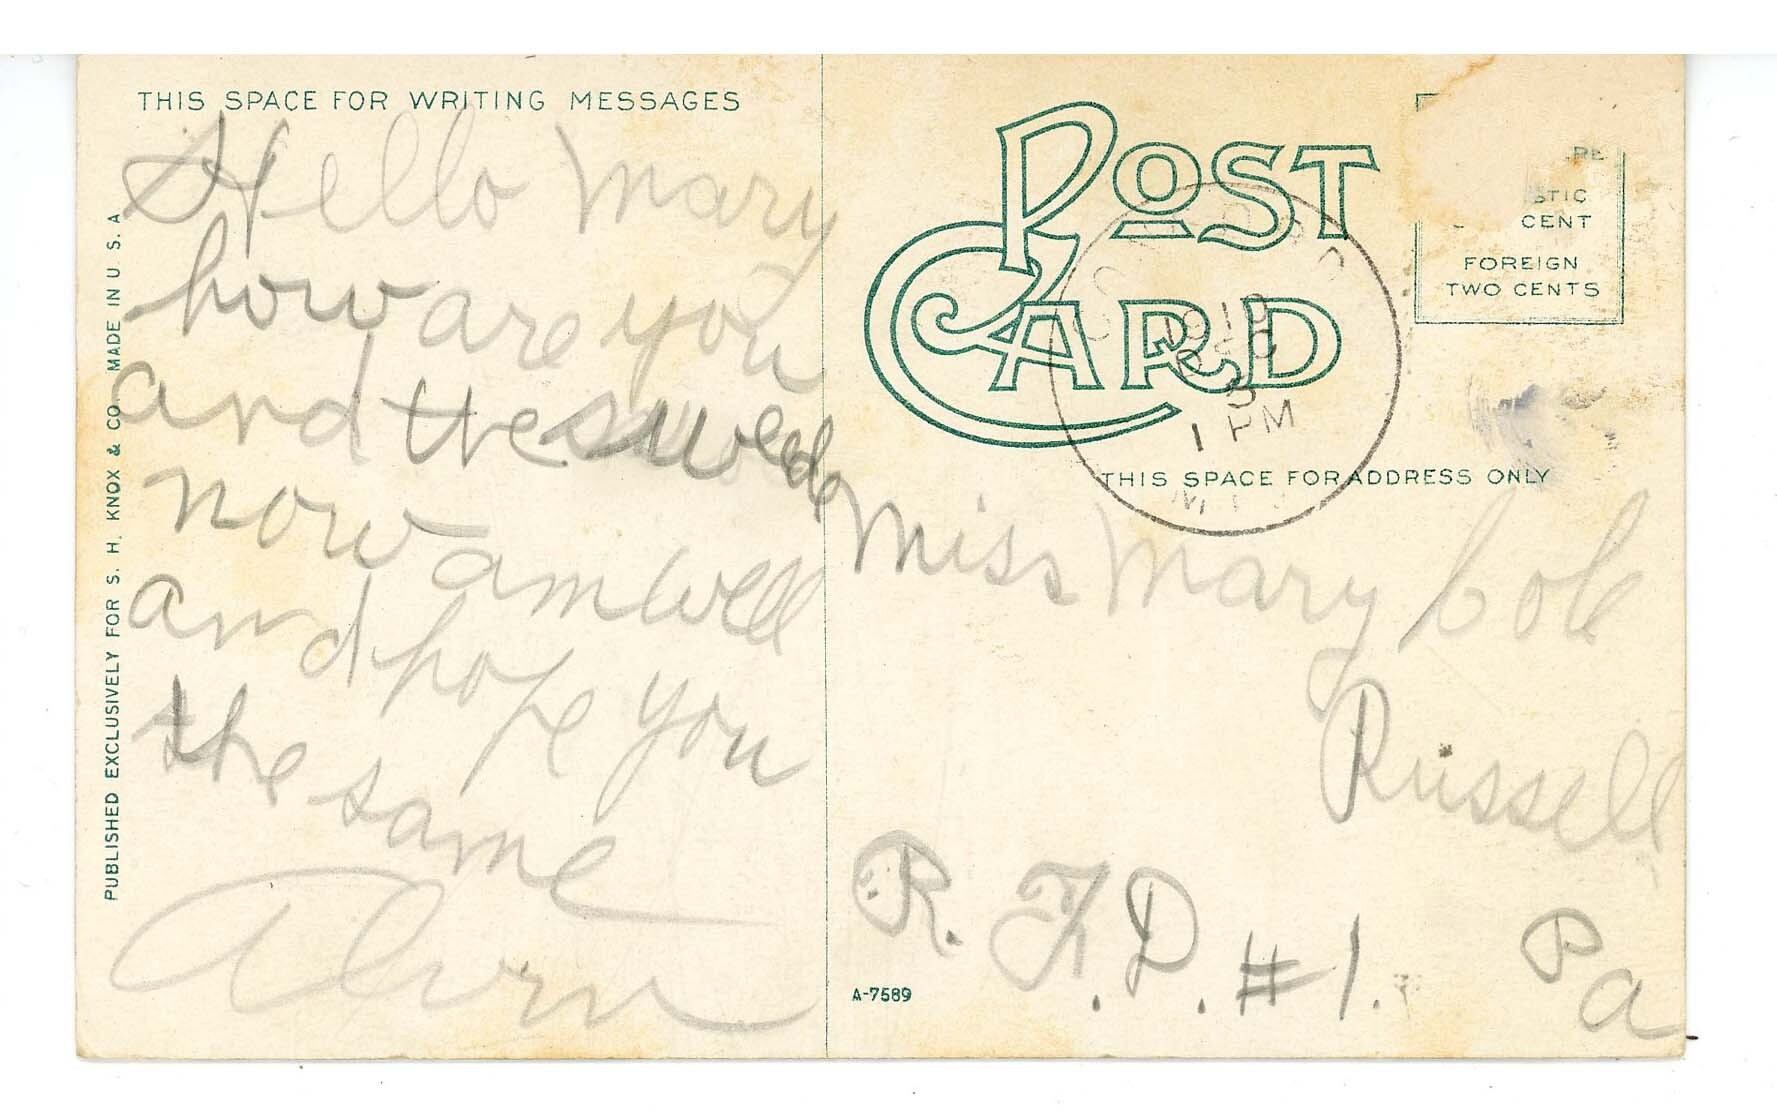 THIS SPACE FOR WRITING MESSAGES
Hello Mary
how are you
and the swede
now am well
and hope you
the same
Alvin
PUBLISHED EXCLUSIVELY FOR S. H. KNOX & CO. MADE IN U. S. A
POST
CARD
CENT
FOREIGN
TWO CENTS
1 PM
THIS SPACE FOR ADDRESS ONLY
Miss Mary Cole
Russell
R.F.D. #1. Pa
A-7589